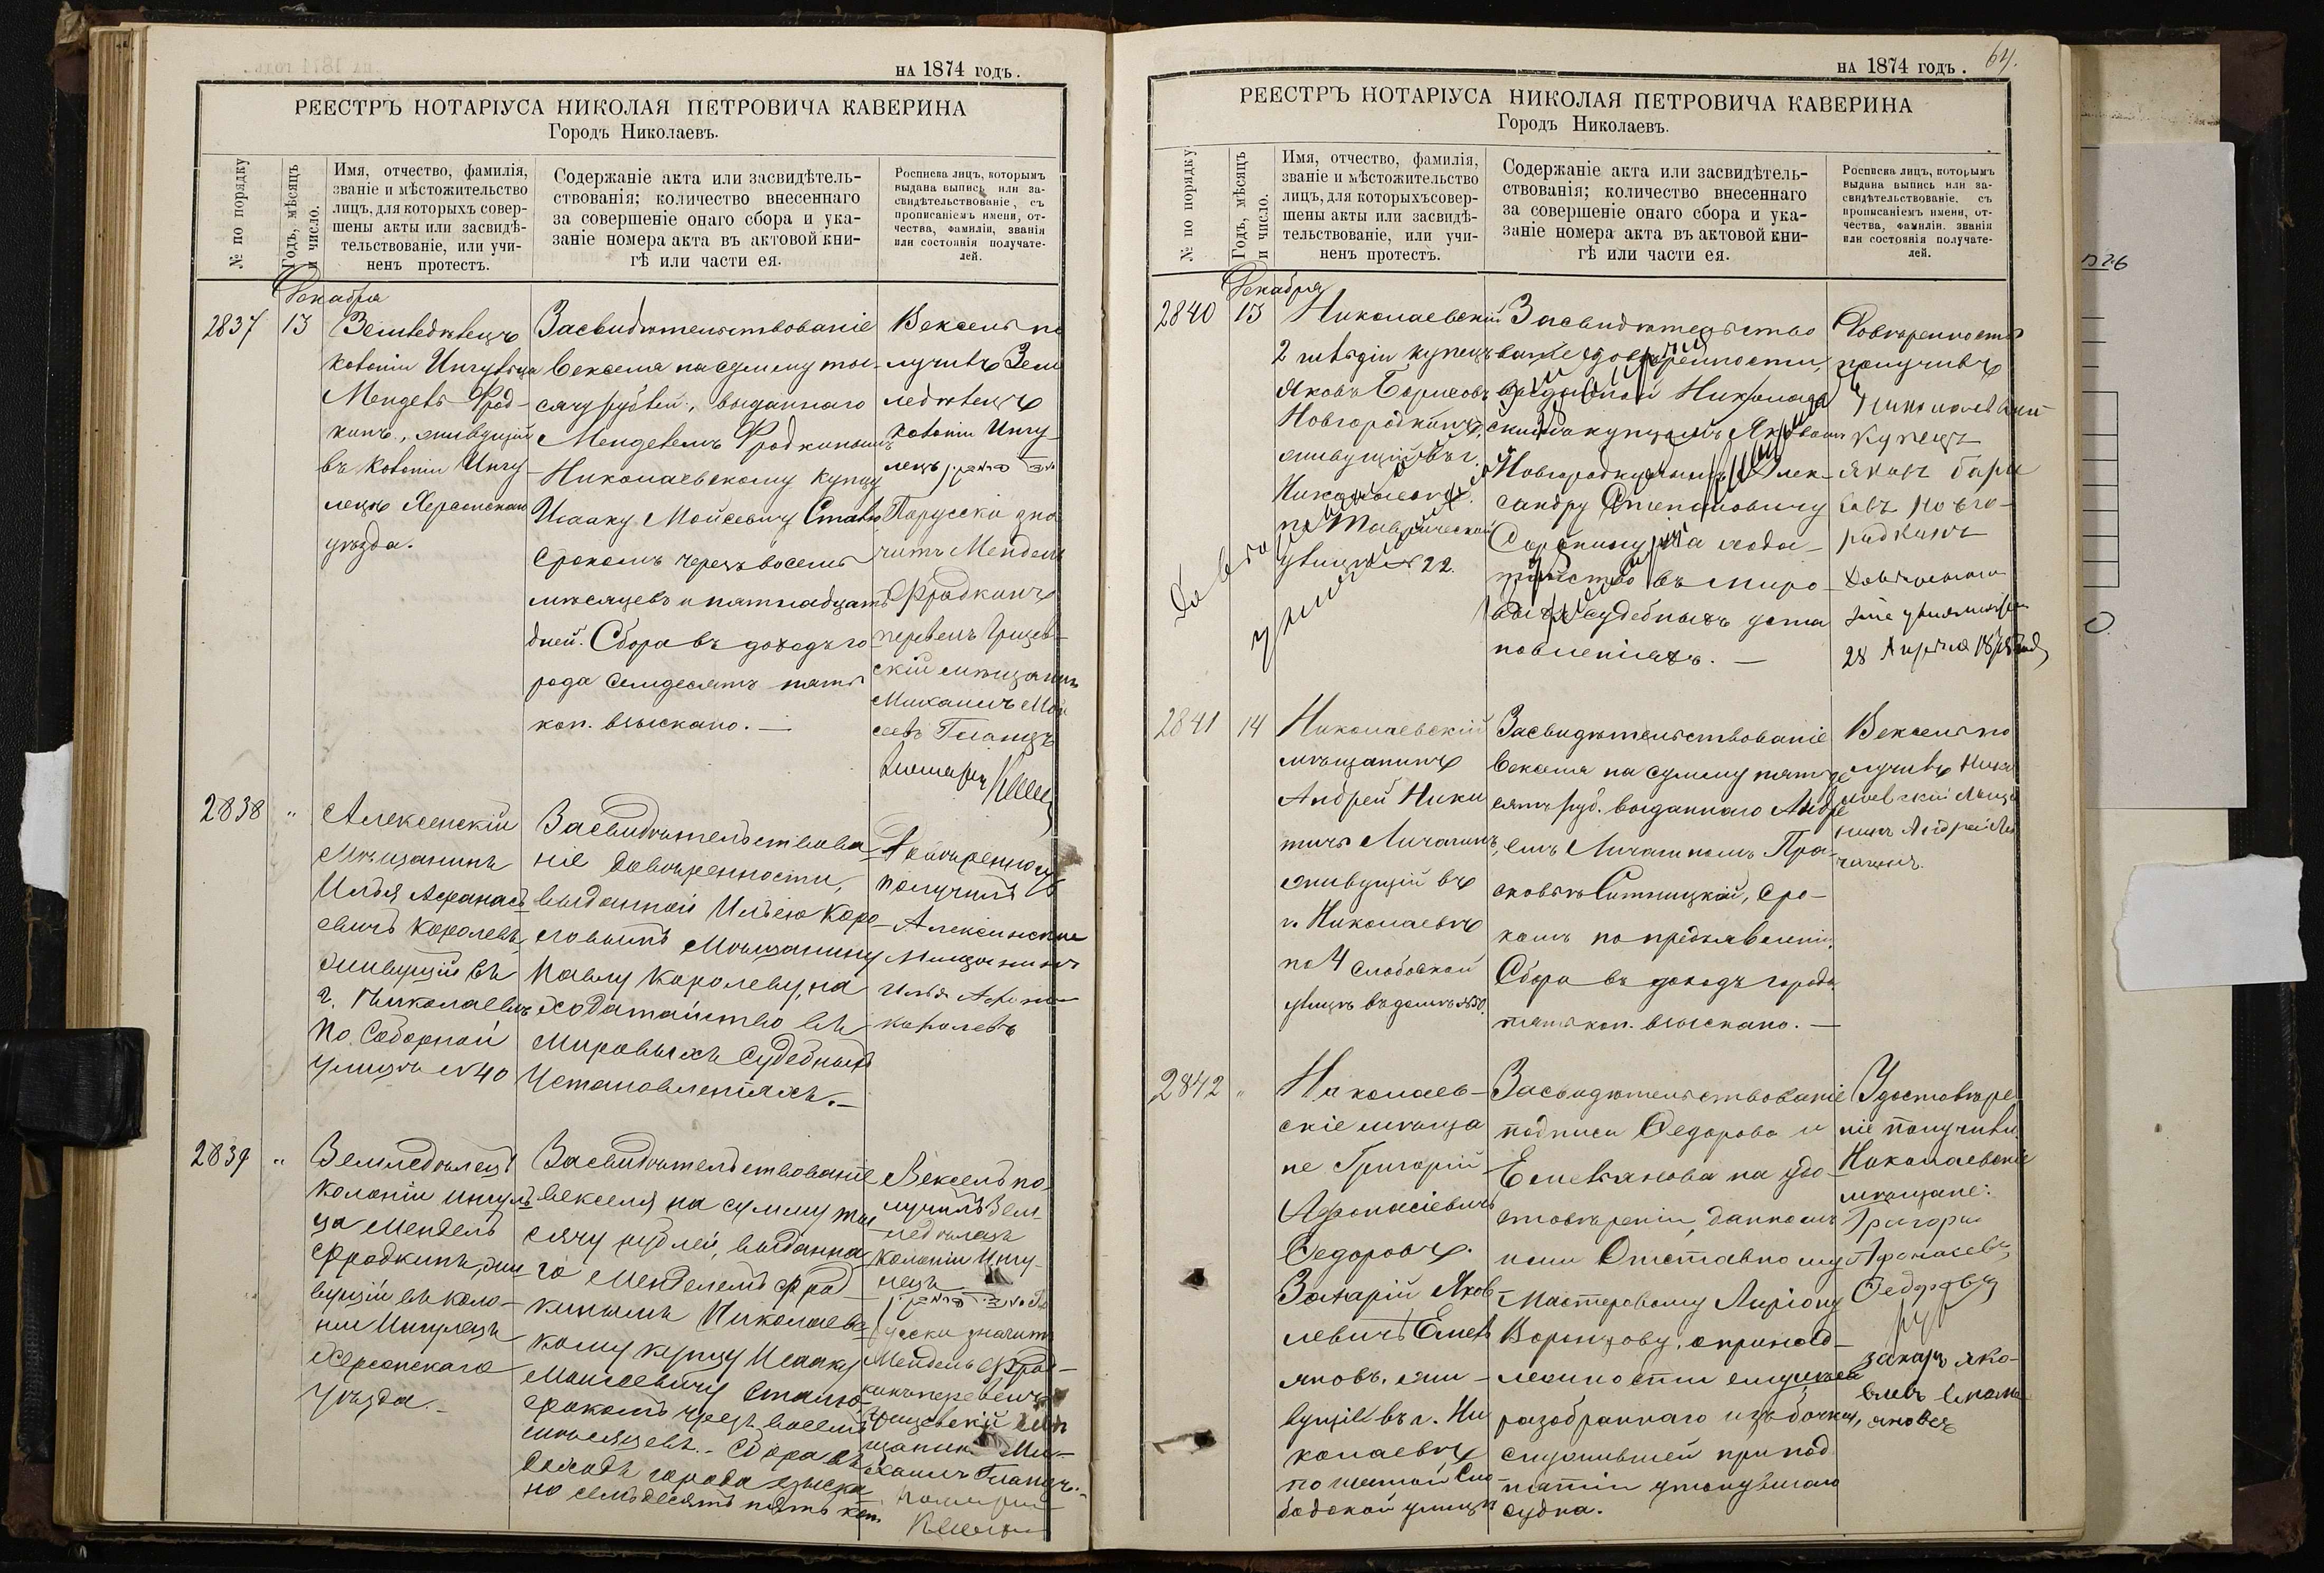 на 1874 годъ.
РЕЕСТРЪ НОТАРІУСА НИКОЛАЯ ПЕТРОВИЧА КАВЕРИНА
Городъ Николаевъ.
№ по порядку
Годъ, мѣсяцъ
и число.
Имя, отчество, фамилія,
званіе и мѣстожительство
лицъ, для которыхъ совер-
шены акты или засвидѣ-
тельствованіе, или учи-
ненъ протестъ.
Содержаніе акта или засвидѣтель-
ствованія; количество внесеннаго
за совершеніе онаго сбора и ука-
заніе номера акта въ актовой кни-
гѣ или части ея.
Росписка лицъ, которымъ
выдана выпись или за-
свидѣтельствованіе, съ
прописаніемъ имени, от-
чества, фамиліи, званія
или состоянія получате-
лей.
Декабря
2837
13
Землѣделецъ
колоніи Ингульца
Мендель Фрад-
кинъ, живущій
въ колоніи Ингу-
лецъ Херсонскаго
уѣзда.
Засвидѣтельствованіе
векселя на сумму ты-
сячу рублей, выданнаго
Менделемъ Фрадкинымъ
Николаевскому купцу
Исааку Мойсевичу
срокомъ черезъ восемь
мѣсяцевъ и пятнадцать
дней. Сбора въ доходъ го-
рода семдесятъ пять
коп. взыскано. —
Вексель по
лучилъ Зем
ледѣлецъ
колоніи Ингу-
лецъ
По русски зна
читъ Мендель
Фрадкинъ
перевелъ
скій мѣщанинъ
2838
"
Алексинскій
Мѣщанинъ
Илья Афанась
евичъ Королевъ,
живущій въ
г. Николаевѣ
по Соборной
улицѣ № 40
Засвидѣтельствова
ніе довѣренности,
выданной Ильею Коро
левымъ Мѣщанину
Павлу Королеву, на
ходатайство въ
Мировыхъ Судебныхъ
Установленіяхъ. —
Довѣренность
получилъ
Алексинскіе
Мещанинъ
Илья
королевъ
2839
"
Земледѣлецъ
Колоніи Ингуль
ца Мендель
Фрадкинъ, жи
вущій въ коло-
ніи Ингулецъ
Херсонскаго
Уѣзда. —
Засвидѣтельствованіе
векселя на сумму ты
сячу рублей, выданна
го Менделемъ Фрад
кинымъ Николаевс
кому купцу Исааку
Моисеевичу
срокомъ чрезъ восемь
мѣсяцевъ. - Сбора въ
доходъ города взыска
но семьдесятъ пять коп.
Вексель по
лучилъ Зем-
ледѣлецъ
колоніи Ингу-
лецъ
русски значитъ
Мендель Фрад-
кинъ перевелъ
на 1874 годъ.
64.
РЕЕСТРЪ НОТАРІУСА НИКОЛАЯ ПЕТРОВИЧА КАВЕРИНА
Городъ Николаевъ.
№ по порядку
Годъ, мѣсяцъ
и число.
Имя, отчество, фамилія,
званіе и мѣстожительство
лицъ, для которыхъ совер-
шены акты или засвидѣ-
тельствованіе, или учи-
ненъ протестъ.
Содержаніе акта или засвидѣтель-
ствованія; количество внесеннаго
за совершеніе онаго сбора и ука-
заніе номера акта въ актовой кни-
гѣ или части ея.
Росписка лицъ, которымъ
выдана выпись или за-
свидѣтельствованіе, съ
прописаніемъ имени, от-
чества, фамиліи, званія
или состоянія получате-
лей.
Декабря
2840
13
Николаевскій
2 гильдіи купецъ
Яковъ Борисовъ
Новгородкинъ,
живущій въ г.
Николаевѣ
по Таврической
улицѣ № 22.
Засвидѣтельство
ваніе довѣренности,
выданной Николаев
скимъ купцомъ Яковомъ
Новгородкинымъ Алек-
сандру Степановичу
Сорокину, на хода-
тайство въ миро-
выхъ судебныхъ уста
новленіяхъ. —
Довѣренность
получилъ
Николаевский
купецъ
Яковъ бори
совъ новго-
родкинъ
2841
14
Николаевскій
мѣщанинъ
Андрей Ники
тичъ Личагинъ,
живущій въ
г. Николаевѣ
по 4 Слободской
улицѣ въ домѣ № 50.
Засвидѣтельствованіе
векселя на сумму пятьде
сятъ руб. выданнаго Андре
емъ Личагинымъ Пра-
сковьѣ Ситницкой, сро-
комъ по предъявленіи.
Сбора въ доходъ города
пять коп. взыскано. —
Вексель по
лучилъ Нико
лаевский Меща
нинъ Андрей Ли
чагинъ.
2842
"
Николаев-
скіе мѣща
не Григорій
Афонасіевичъ
Федоровъ.
Захарій Яков-
левичъ Емель
яновъ, жи-
вущіе въ г. Ни
колаевѣ
по шестой Сло
бодской улицѣ
Засвидѣтельствованіе
подписи Федорова и
Емельянова на удо-
стовѣреніи, данномъ
ими Отставному
Мастеровому Ларіону
Воронцову, о принад-
лежности ему
разобраннаго изъ бочки,
служившей при под
нятіи утонувшаго
судна.
Удостовѣре
ніе получили
Николаевскіе
мѣщане:
Григорий
Афонасевъ
Федоровъ
захаръ яко-
влевъ емель
яновъ